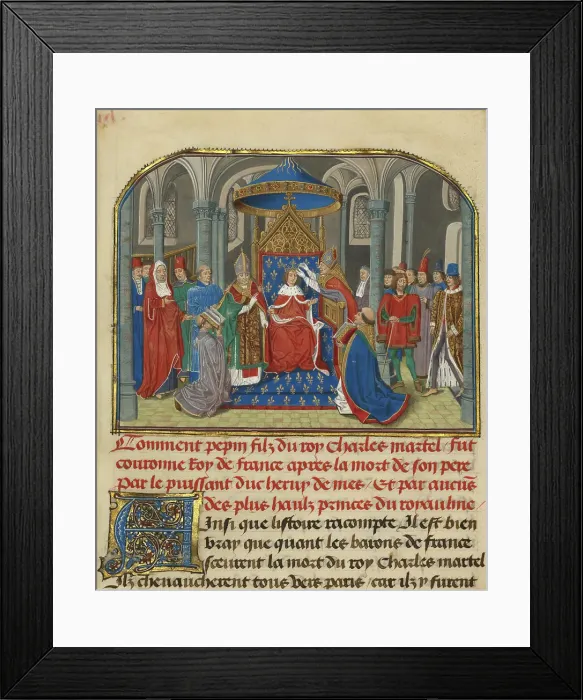 Comment pepin filz du roy Charles martel fut
couronne Roy de france apres la mort de son pere
par le puissant duc heruy de mes / Et par aucuns
des plus haulz princes du royaulme
Ainsi que listoire racompte Il est bien
vray que quant les barons de france
sceurent la mort du roy Charles martel
Ilz cheuaucherent tous vers paris / car ilz y furent